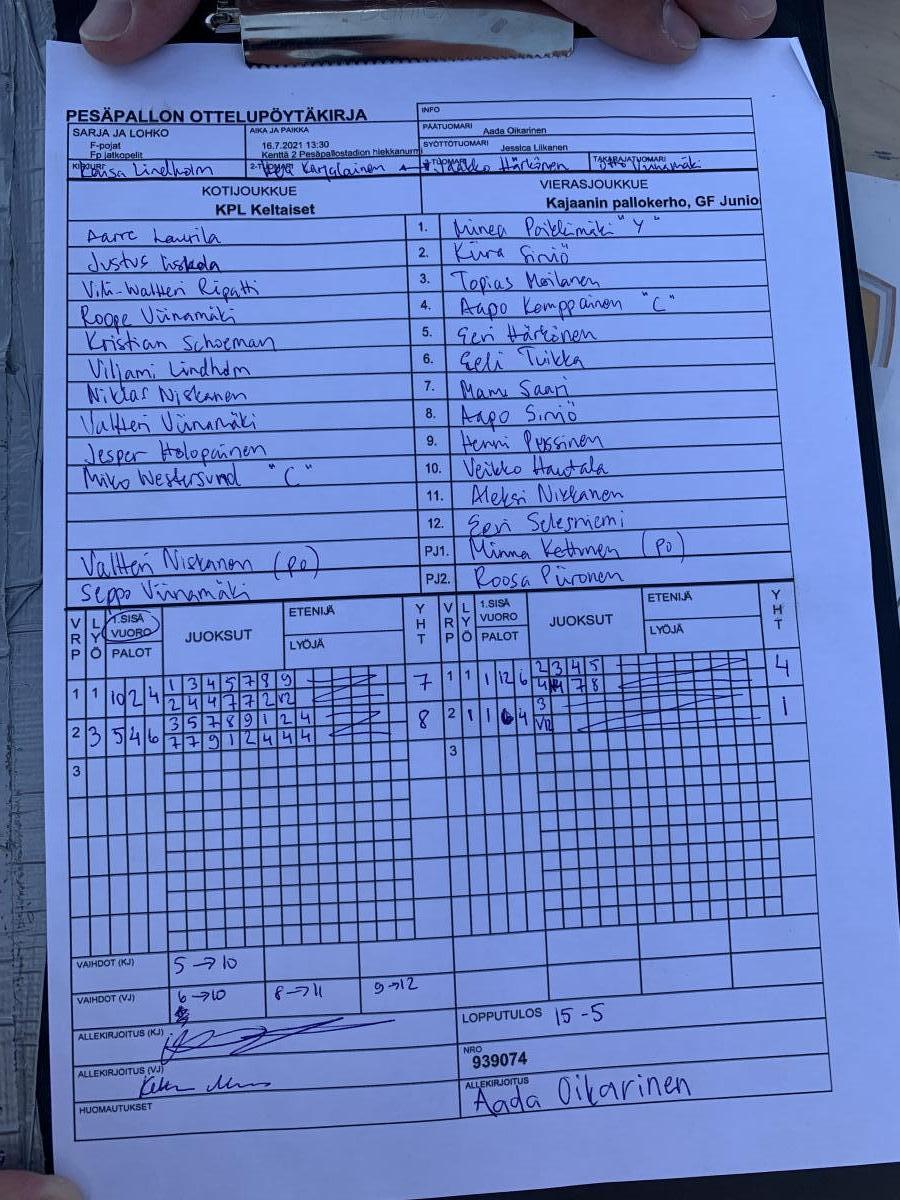 PESÄPALLON OTTELUPÖYTÄKIRJA
INFO
SARJA JA LOHKO
F-pojat
Fp jatkopelit
AIKA JA PAIKKA
16.7.2021 13:30
Kenttä 2 Pesäpallostadion hiekkanurm
PÄÄTUOMARI Aada Oikarinen
SYÖTTÖTUOMARI Jessica Liikanen
KIRJURI Lindholm
2-TUOMARI Karjalainen
Jaakko Härkönen
TAKARAJATUOMARI Viinamäki
KOTIJOUKKUE
KPL Keltaiset
VIERASJOUKKUE
Kajaanin pallokerho, GF Junio
Aarre Laurila 1. Minea Poikkimäki "Y"
Justus 2. Kiira Simiö
Vili-Waltteri Ripatti 3. Topias Moilanen
Roope Viinamäki 4. Aapo Komppainen "C"
Kristian Schoeman 5. Eeri Härkönen
Viljami Lindholm 6. Eeli Tuikka
Niklas Niskanen 7. Manu Saari
Valtteri Viinamäki 8. Aapo Simiö
Jesper Holopainen 9. Henni Pyssinen
Miko Westersund "C" 10. Veikko Hautala
11. Aleksi Niskanen
12. Eeri
Valtteri Niskanen (PO) PJ1. Minna Kettunen (PO)
Seppo Viinamäki PJ2. Roosa Piironen
VRP LYÖ 1.SISÄ VUORO PALOT JUOKSUT ETENIJÄ LYÖJÄ YHT VRP LYÖ 1.SISÄ VUORO PALOT JUOKSUT ETENIJÄ LYÖJÄ YHT
1 1 10 2 4 1 3 4 5 7 8 9 7 1 1 1 12 6 2 3 4 5 4
2 4 4 7 7 2 V2 4 4 7 8
2 3 5 4 6 3 5 7 8 9 1 2 4 8 2 1 1 6 4 3 1
7 7 9 1 2 4 4 4
3 3
VAIHDOT (KJ) 5→10
VAIHDOT (VJ) 6→10 8→11 9→12
ALLEKIRJOITUS (KJ)
LOPPUTULOS 15-5
ALLEKIRJOITUS (VJ)
NRO
939074
HUOMAUTUKSET
ALLEKIRJOITUS
Aada Oikarinen